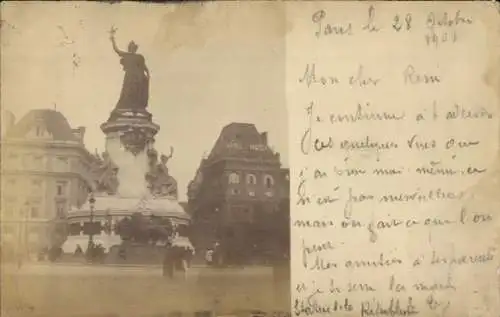 Paris le 28 Octobre
1901
Mon cher Remi
Je continue à t'adresser
ces quelques vues que
j'ai moi même
n'est pas merveilleux
mais on fait ce que l'on
peut.
Mes amitiés à tes parents
et je te serre la main
Statue de la République
HOTEL MODERNE